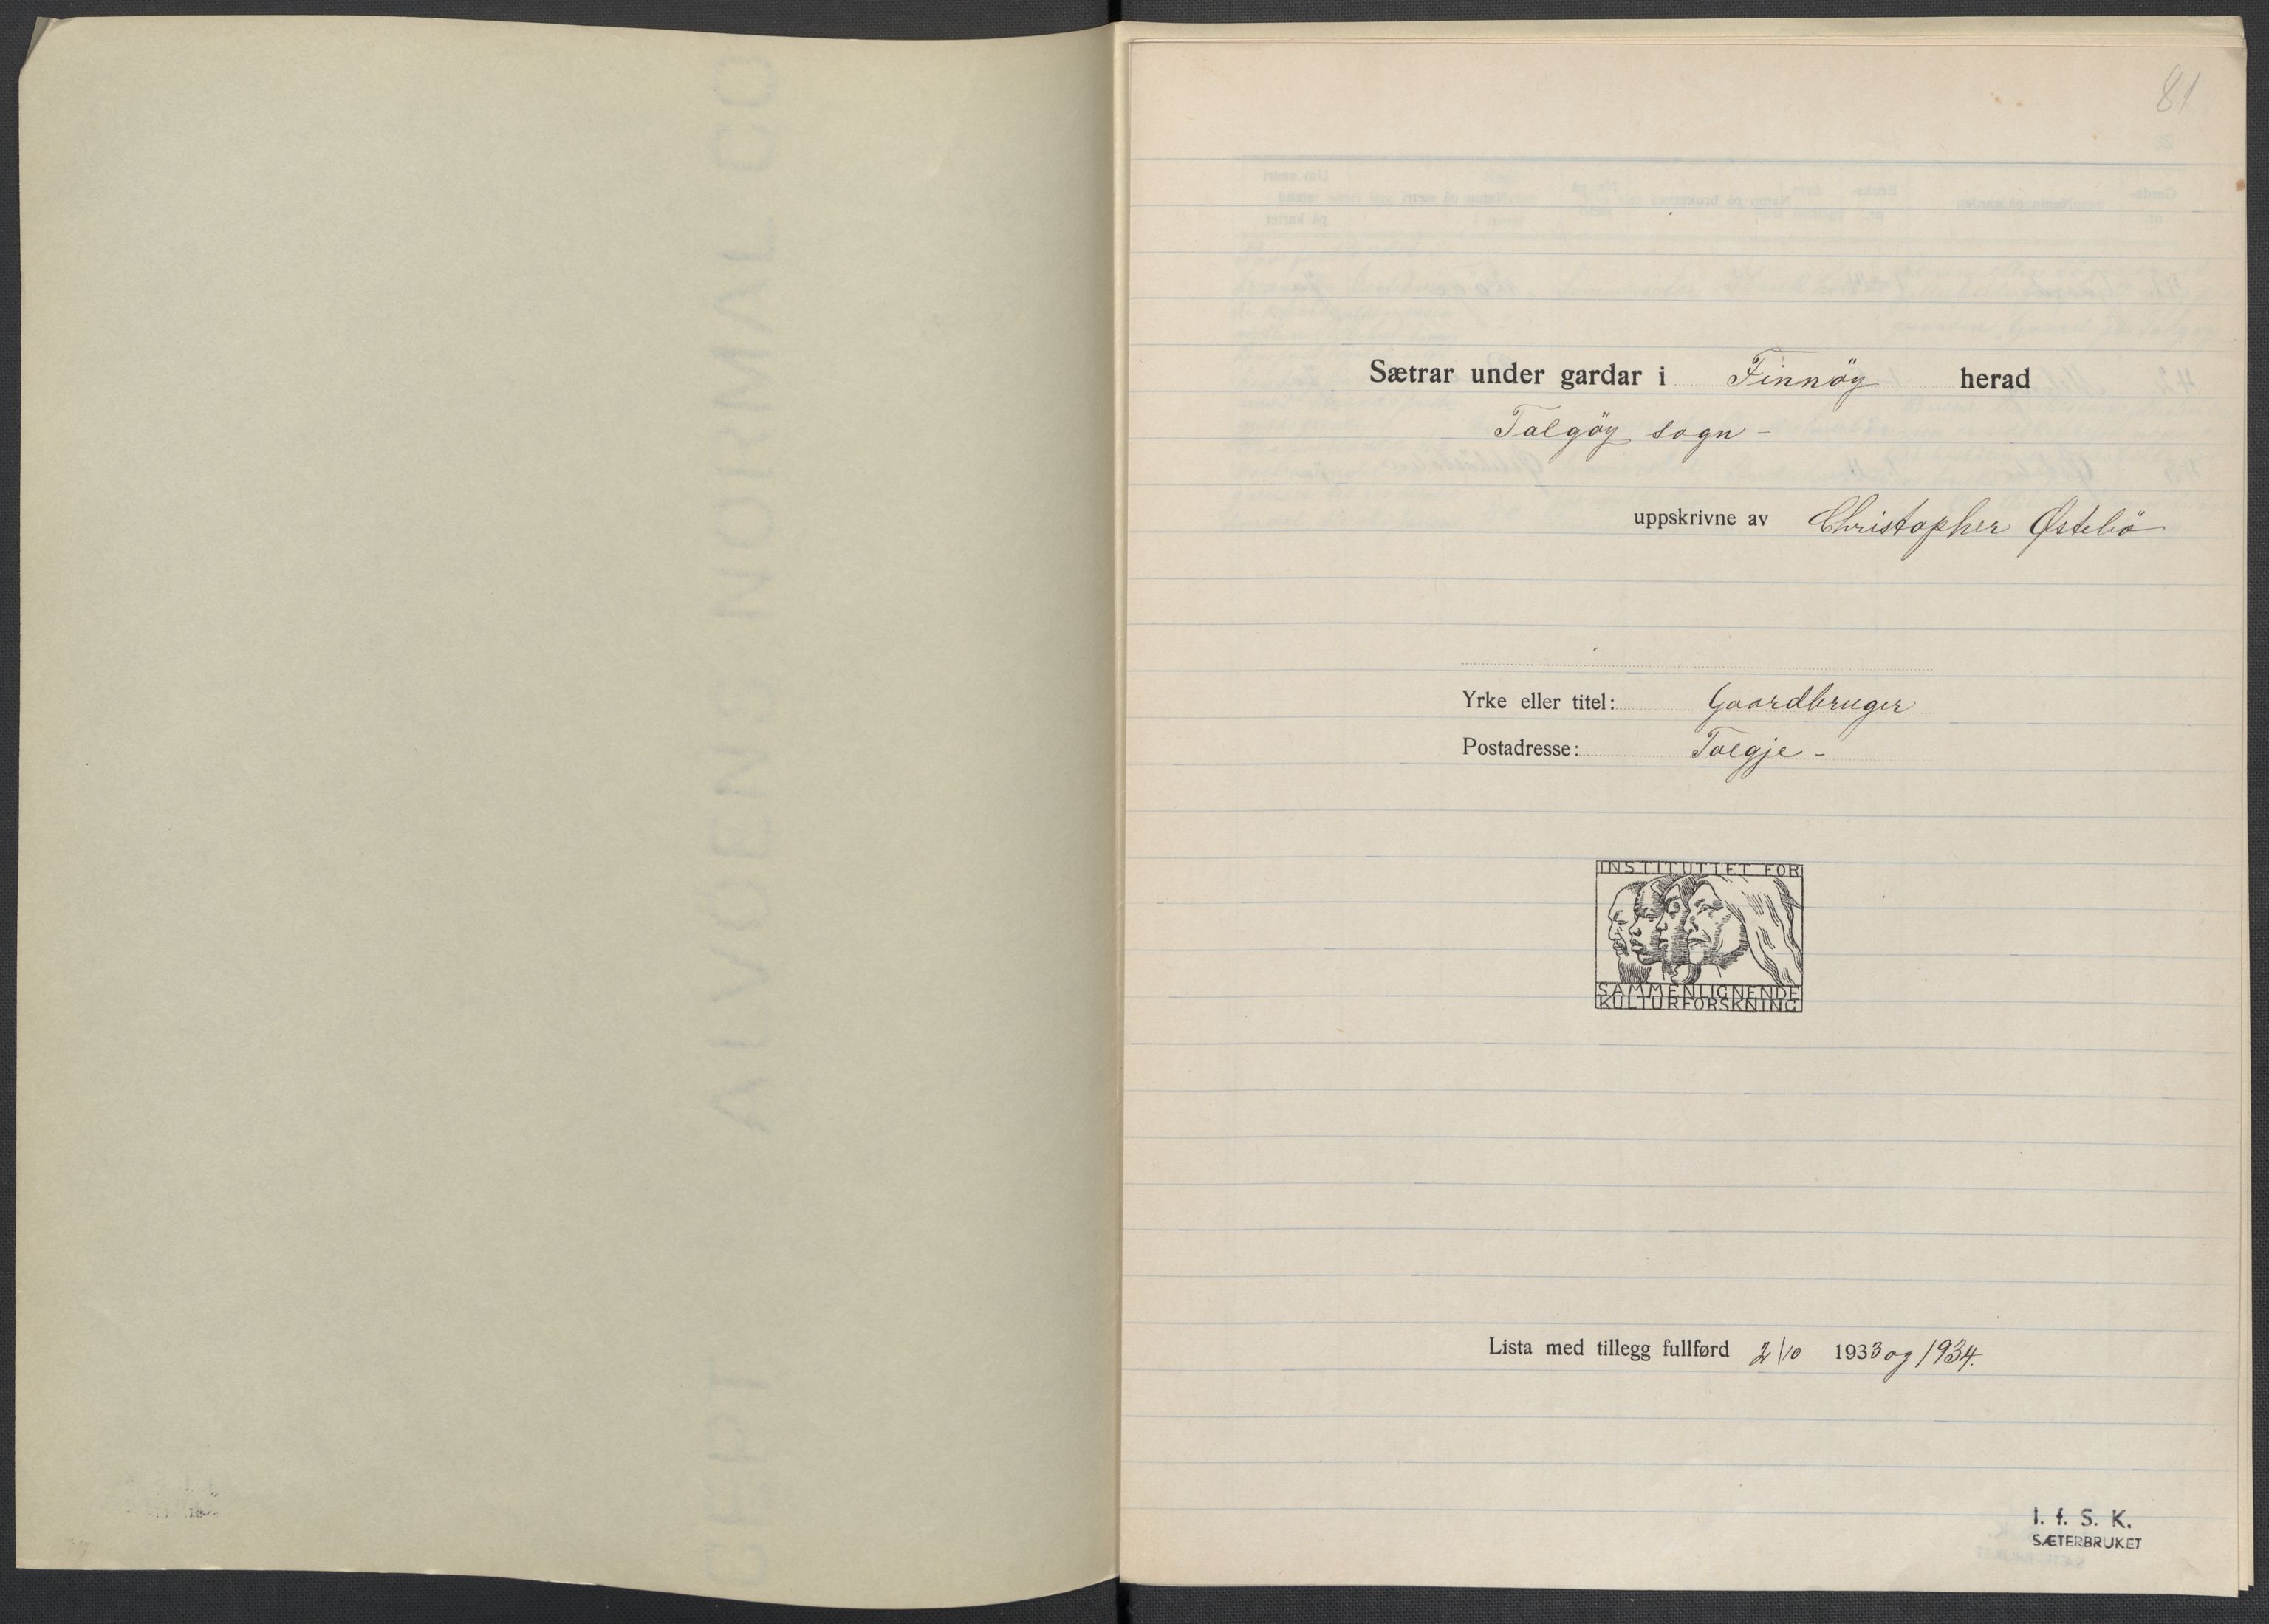 81
Sætrar under gardar i Finnöy herad
Talgöy sogn -
uppskrivne av Christopher Østebö
Yrke eller titel: Gaardbruger
Postadresse: Talgje -
INSTITUTTET FOR
SAMMENLIGNENDE
KULTURFORSKNING
Lista med tillegg fullførd 2/10 1933 og 1934.
I. f. S. K.
SÆTERBRUKET